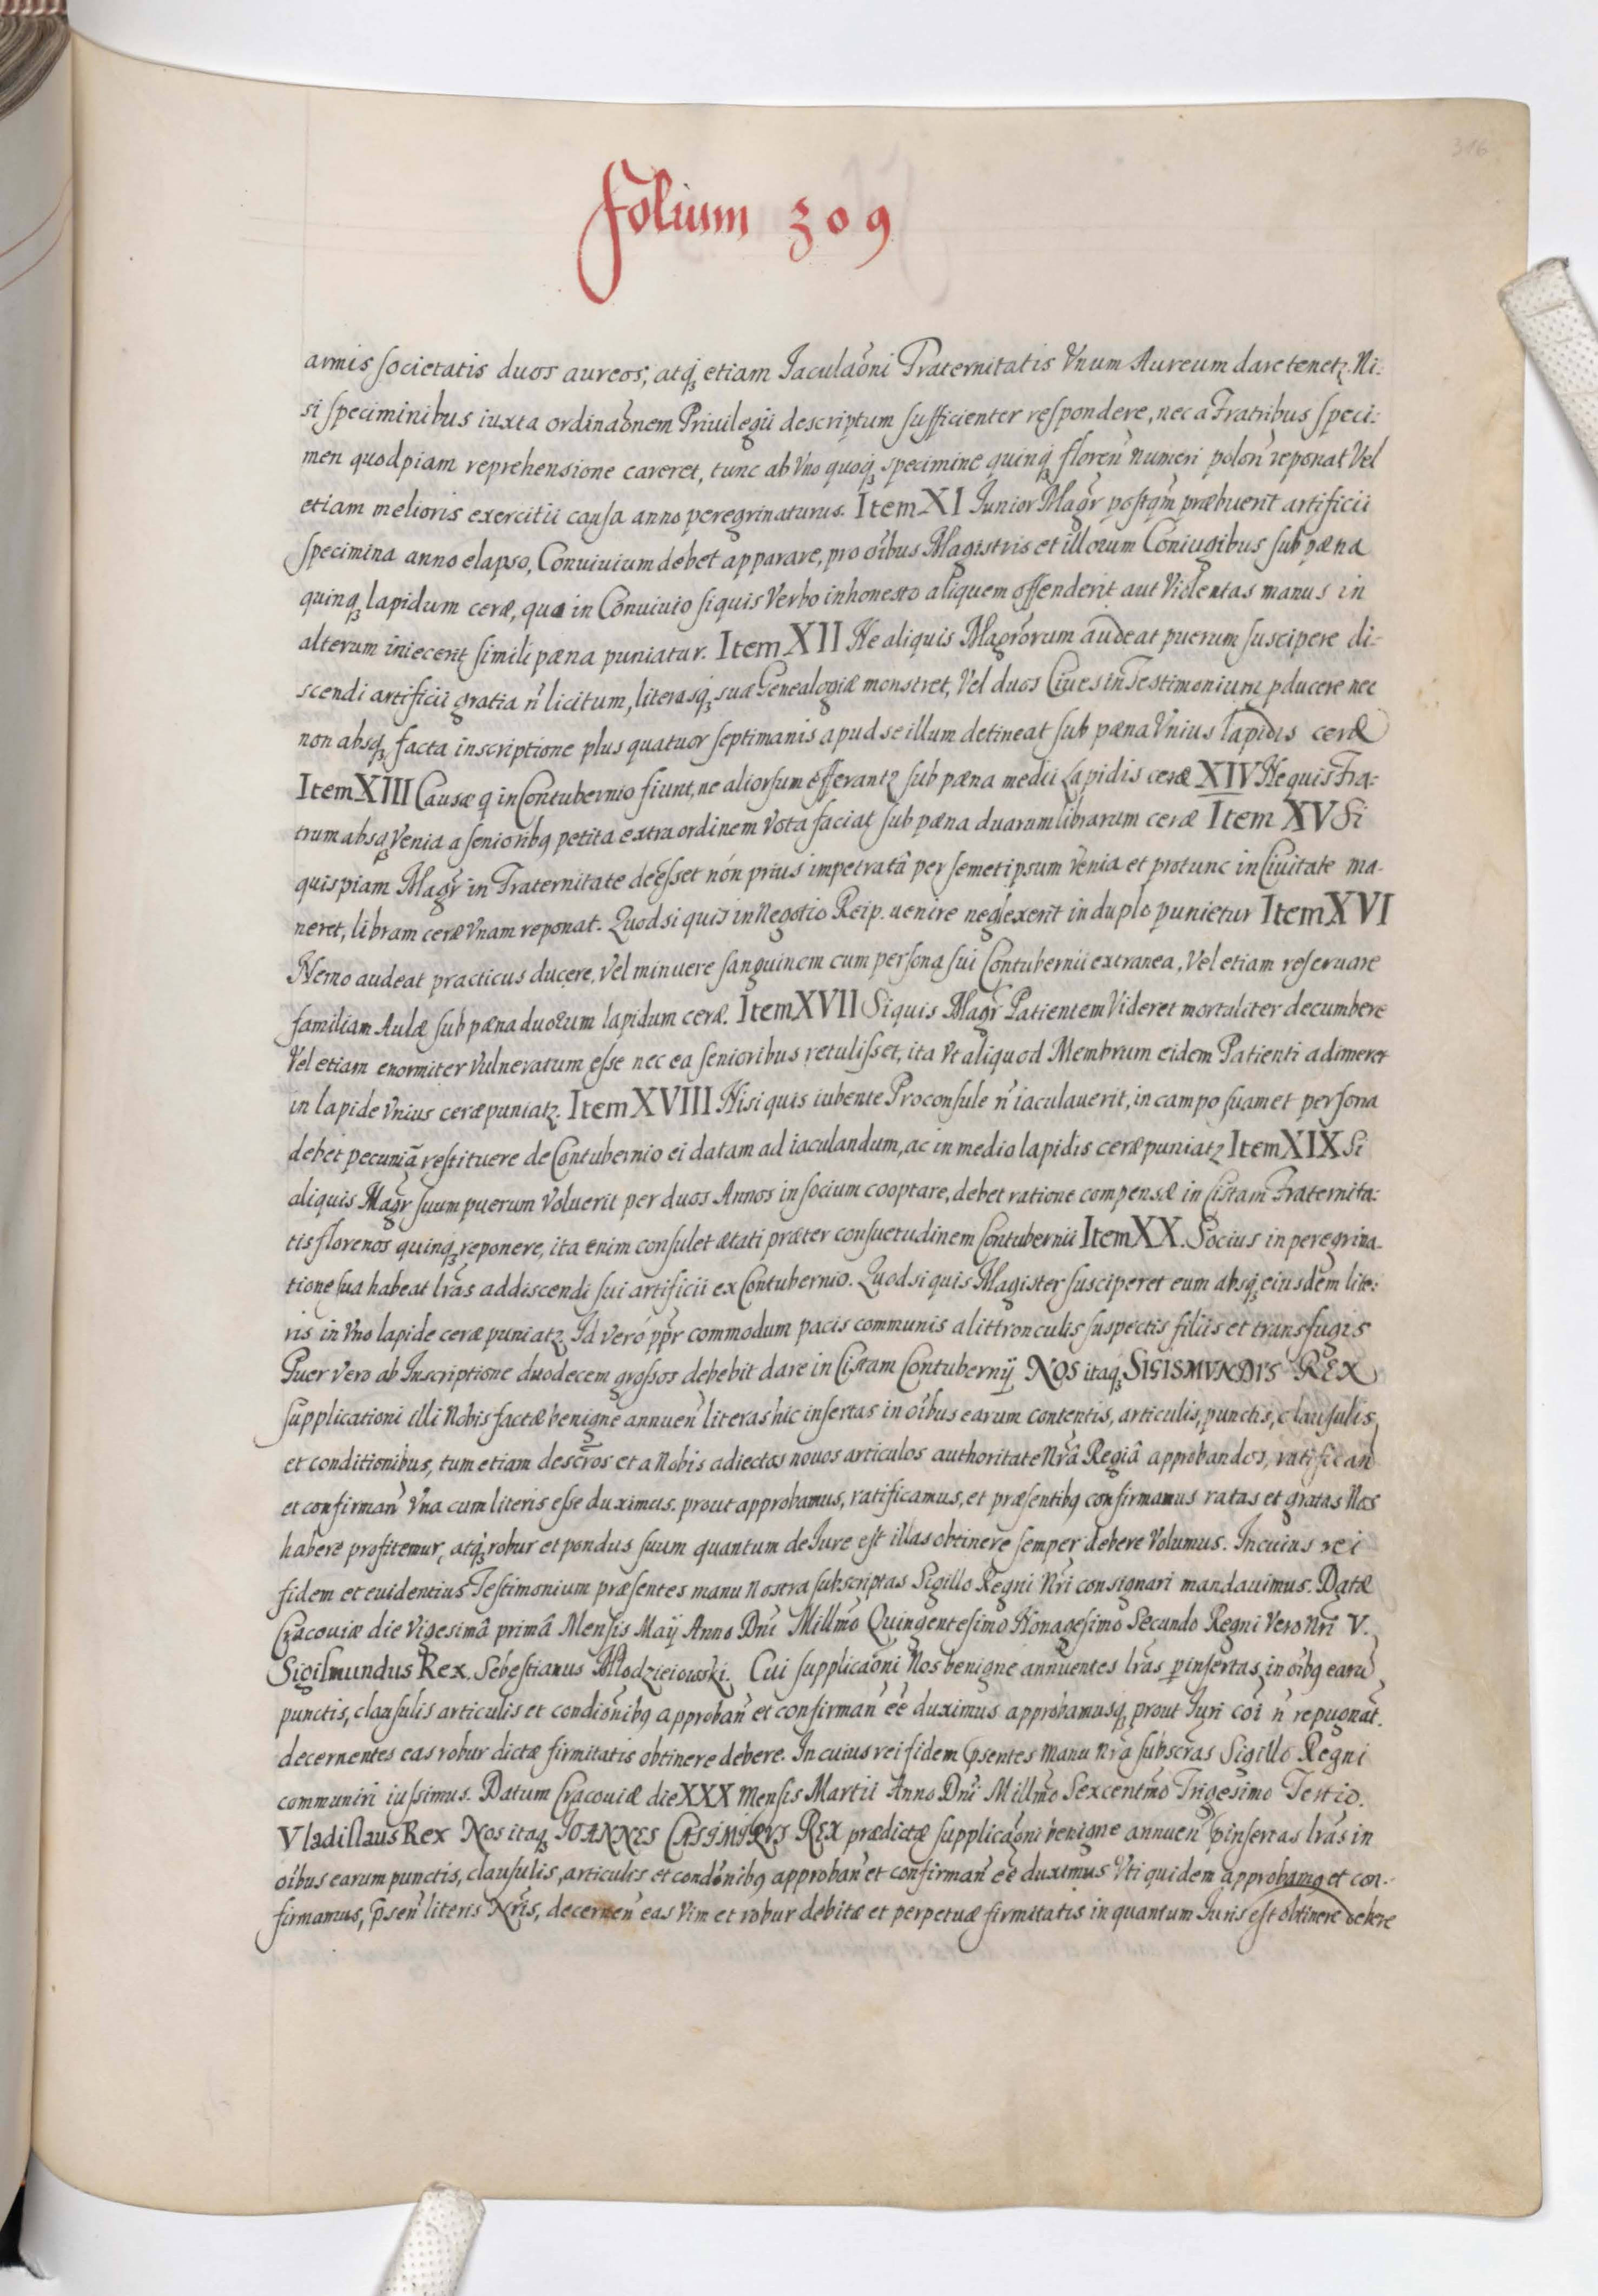 316
Folium 309
armis societatis duos aureos, atq̃ etiam Iaculaõni Fraternitatis Vnum Aureum dare tenetꝫ. Ni:
si speciminibus iuxta ordinaõnem Priuilegii descriptum sufficienter respondere, nec a Fratribus speci:
men quodpiam reprehensione careret, tunc ab Vno quoqꝫ specimine quinqꝫ floreñ numeri poloñ reponat Vel
etiam melioris exercitii causa anno peregrinaturus. Item XI Iunior Magr̃ postqm̃ præbuerit artificii
specimina anno elapso, Conuiuium debet apparare, pro oĩbus Magistris et illorum Coniugibus sub pæna
quinqꝫ lapidum ceræ, qua in Conuiuio si quis Verbo inhonesto aliquem offenderit aut Violentas manus in
alterum iniecerit simili pæna puniatur. Item XII Ne aliquis Magrõrum audeat puerum suscipere di-
scendi artificii gratia ñ licitum, literasqꝫ suæ Genealogiæ monstret, Vel duos Ciues in Testimonium pducere nec
non absqꝫ facta inscriptione plus quatuor septimanis apud se illum detineat sub pæna Vnius lapidis ceræ
Item XIII Causæ q in Contubernio fiunt, ne aliorsum efferantꝫ sub pæna medii Lapidis ceræ XIV Ne quis Fra:
trum absqꝫ Venia a senioribꝯ petita extra ordinem Vota faciat sub pæna duarum librarum ceræ Item XV Si
quispiam Magr̃ in Fraternitate deesset non prius impetratâ per semetipsum venia et protunc in Ciuitate ma-
neret, libram ceræ Vnam reponat. Quod si quis in Negotio Reip. uenire neglexerit in duplo punietur Item XVI
Nemo audeat practicus ducere, Vel minuere sanguinem cum persona sui Contubernii extranea, Vel etiam reseruare
familiam Aulæ sub pæna duorum lapidum ceræ. Item XVII Si quis Magr̃ Patientem Videret mortaliter decumbere
Vel etiam enormiter Vulneratum esse nec ea senioribus retulisset, ita Vt aliquod Membrum eidem Patienti adimeret
in lapide Vnius ceræ puniatꝫ. Item XVIII Nisi quis iubente Proconsule ñ iaculauerit, in campo suamet persona
debet pecuniã restituere de Contubernio ei datam ad iaculandum, ac in medio lapidis ceræ puniatꝫ Item XIX Si
aliquis Magr̃ suum puerum Voluerit per duos Annos in socium cooptare, debet ratione compensæ in Cistam Fraternita:
tis florenos quinqꝫ reponere, ita enim consulet ætati præter consuetudinem Contubernii Item XX. Socius in peregrina-
tione sua habeat lr̃as addiscendi sui artificii ex Contubernio. Quod si quis Magister susciperet eum absqꝫ eiusdem lite:
ris in Vno lapide ceræ puniatꝫ. Id vero ppr̃ commodum pacis communis a littronculis suspectis filiis et transfugis
Puer vero ab Inscriptione duodecem grossos debebit dare in Cistam Contubernÿ NOS itaqꝫ SIGISMVNDVS REX
supplicationi illi Nobis factæ benigne annueñ literas hic insertas in oĩbus earum contentis, articulis, punctis, clausulis,
et conditionibus, tum etiam descr̃os et a Nobis adiectos nouos articulos authoritate Nr̃â Regiâ approbandos, ratificañ
et confirmañ Vna cum literis esse duximus. prout approbamus, ratificamus, et præsentibꝯ confirmamus ratas et gratas Nos
habere profitemur, atqꝫ robur et pondus suum quantum de Iure est illas obtinere semper debere Volumus. In cuius rei
fidem et euidentius Testimonium præsentes manu Nostra subscriptas Sigillo Regni Nr̃i consignari mandauimus. Datæ
Cracouiæ die Vigesimâ primâ Mensis Maÿ Anno Dñi Millmõ Quingentesimo Nonagesimo Secundo Regni Vero Nr̃i V.
Sigismundus Rex. Sebestianus Młodzieiowski. Cui supplicaõni Nos benigne annuentes lr̃as pinsertas, in oĩbꝯ earũ
punctis, clausulis articulis et condiõnibꝯ approbañ et confirmañ eẽ duximus approbamusqꝫ prout Iuri coĩ ñ repugnat.
decernentes eas robur dictæ firmitatis obtinere debere. In cuius rei fidem p̃sentes manu nr̃a subscr̃as Sigillo Regni
communiri iussimus. Datum Cracouiæ die XXX Mensis Martii Anno Dñi Millmõ Sexcentmõ Trigesimo Tertio.
Vladislaus Rex Nos itaqꝫ IOANNES CASIMIRVS REX prædictæ supplicaõni benigne annueñ pinsertas lr̃as in
oĩbus earum punctis, clausulis, articulis et condõnibꝯ approbañ et confirmañ eẽ duximus Vti quidem approbamꝯ et con-
firmamus, p̃señ literis Nr̃is, decerneñ eas Vim et robur debitæ et perpetuæ firmitatis in quantum Iuris est obtinere debere